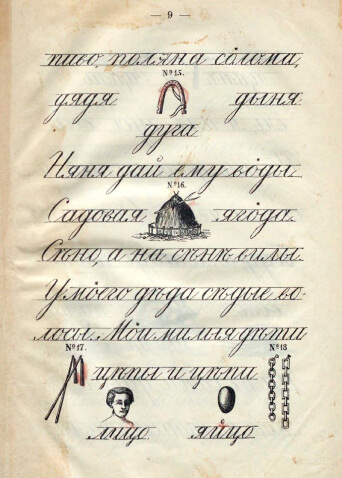 — 9 —
пиво, поляна солома,
№15.
дядя дыня
дуга
Няня дай ему воды
№16.
Садовая ягода.
Сѣно, а на сѣнѣ вилы.
У моего дѣда сѣдые во-
лосы. Мои милыя дѣти
№17. №18
цѣпы и цѣпи
лицо яйцо